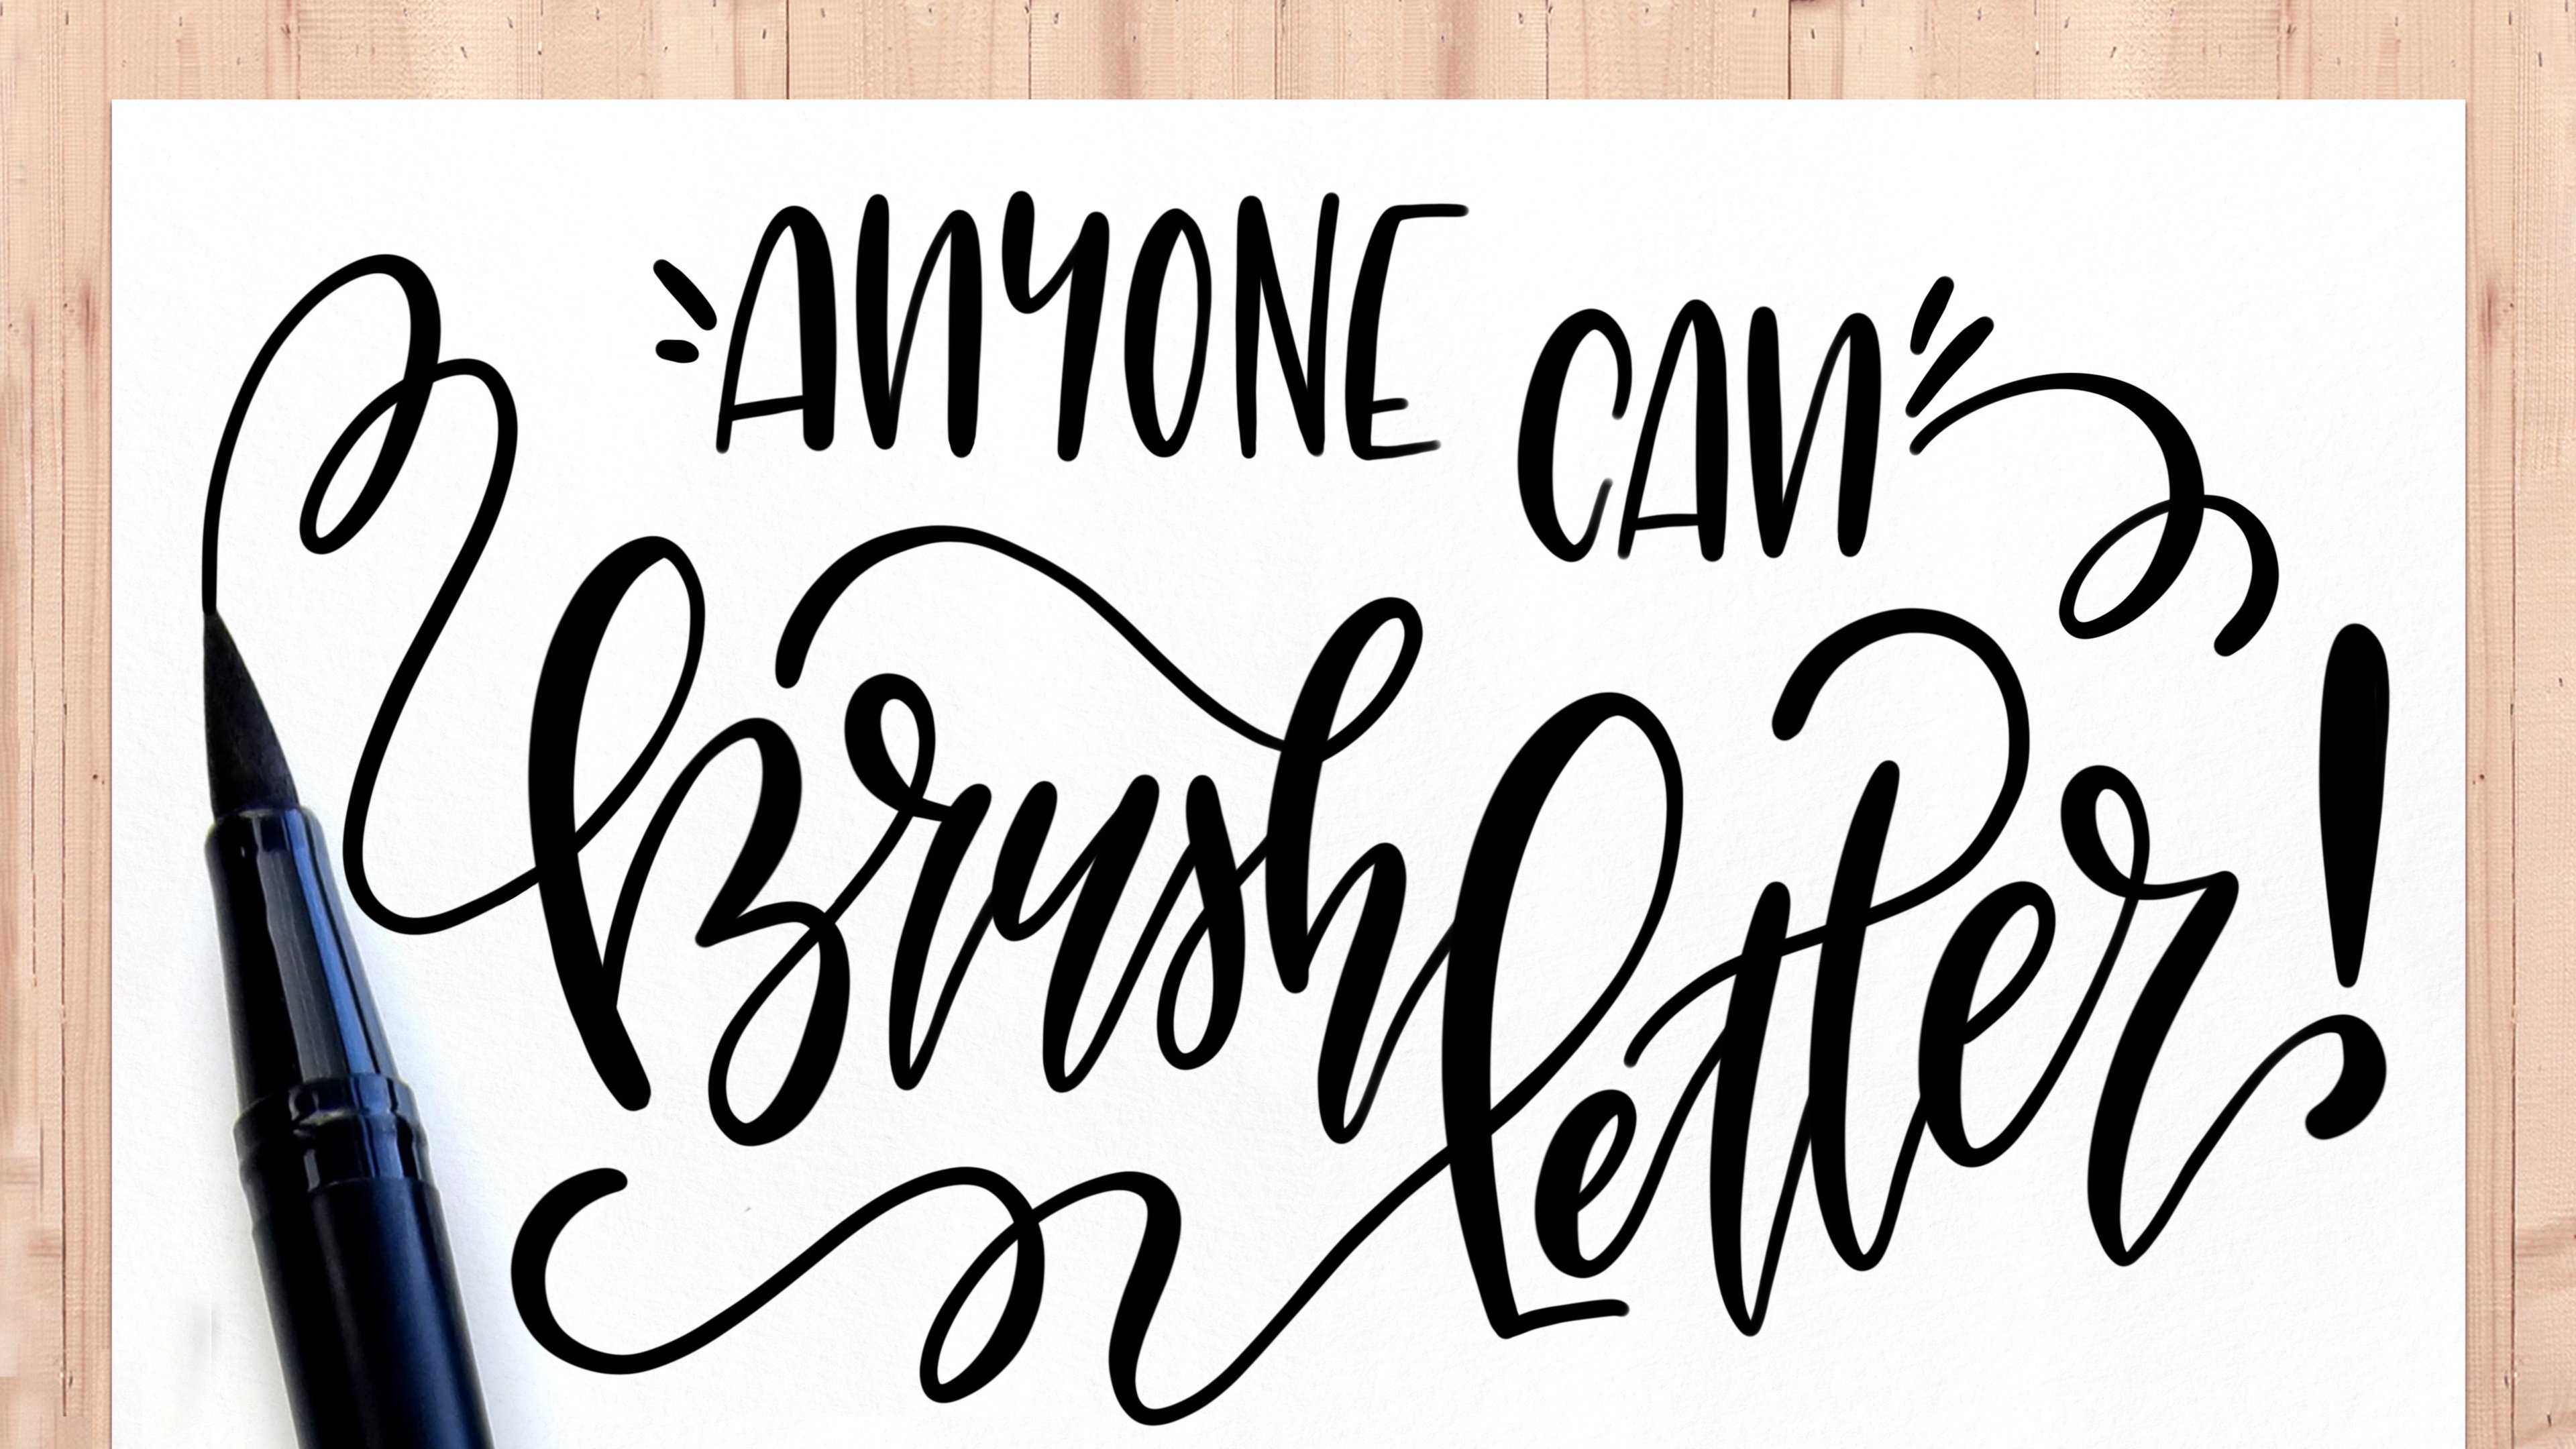 ANYONE CAN
Brush Letter!